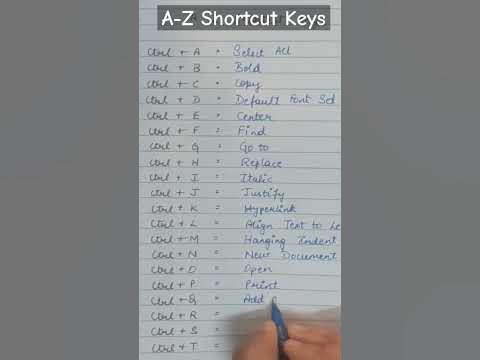 A-Z Shortcut Keys
Ctrl + A = Select All
Ctrl + B = Bold
Ctrl + C = Copy
Ctrl + D = Default Font Set
Ctrl + E = Center
Ctrl + F = Find
Ctrl + G = Go to
Ctrl + H = Replace
Ctrl + I = Italic
Ctrl + J = Justify
Ctrl + K = Hyperlink
Ctrl + L = Align Text to Le
Ctrl + M = Hanging Indent
Ctrl + N = New Document
Ctrl + O = Open
Ctrl + P = Print
Ctrl + Q = Add
Ctrl + R =
Ctrl + S =
Ctrl + T =